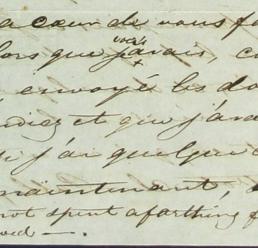 a cœur de vous fa
lors que j'avais, c
envoyé les do
diez et que j'ava
j'ai quelque c
maintenant,
not spent a farthing f